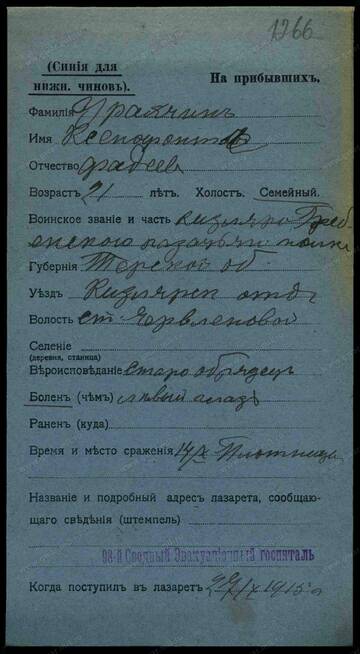 1266
(Синія для
нижн. чиновъ).
На прибывшихъ.
Фамилія Фролчинъ
Имя Ксенофонтъ
Отчество Фадеев
Возрастъ 21 лѣтъ. Холостъ. Семейный.
Воинское званіе и часть Кизляро Греб-
енского казачьяго полка
Губернія Терской об
Уѣздъ Кизлярск отд
Волость ст. Червленовой
Селеніе
(деревня, станица)
Вѣроисповѣданіе Старообрядецъ
Боленъ (чѣмъ) лѣвый глазъ
Раненъ (куда)
Время и мѣсто сраженія 14/IX
Названіе и подробный адресъ лазарета, сообщаю-
щаго свѣдѣнія (штемпель)
93-й Сводный Эвакуаціонный госпиталь
Когда поступилъ въ лазаретъ 29/IX 1915 г